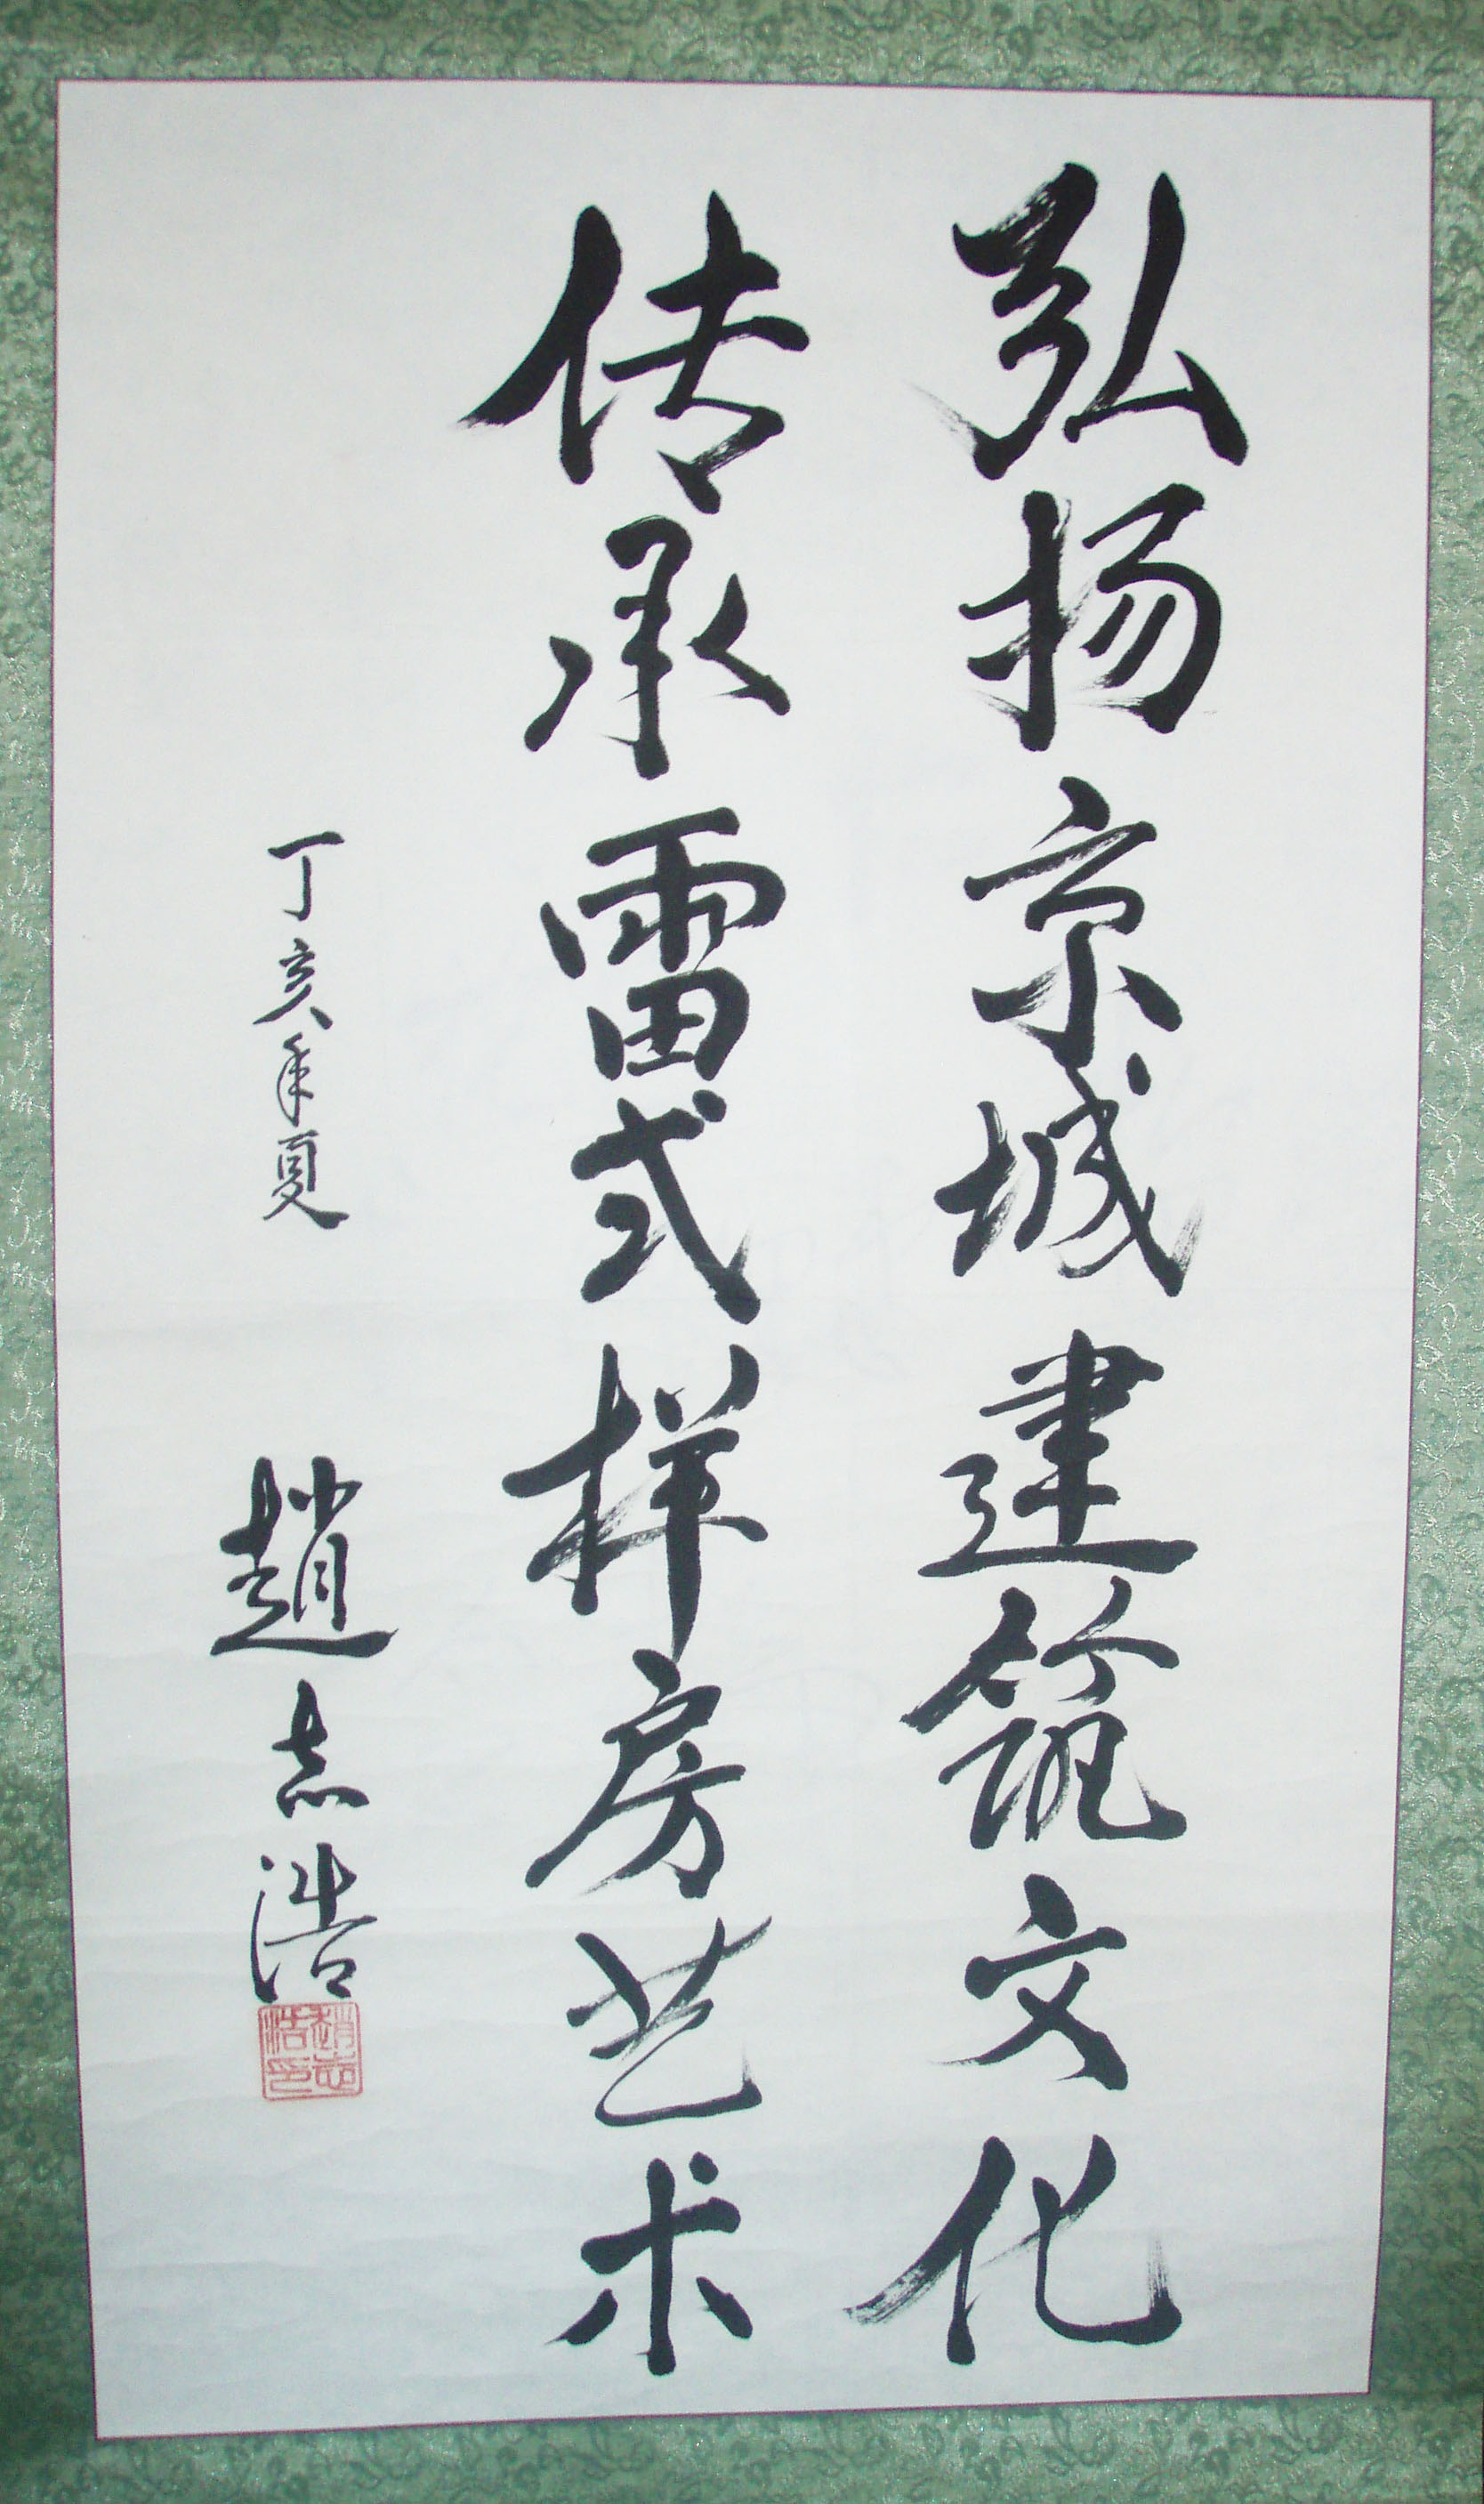 弘扬京城建筑文化
传承雷式样房艺术
丁亥年夏
趙志浩
趙志浩印